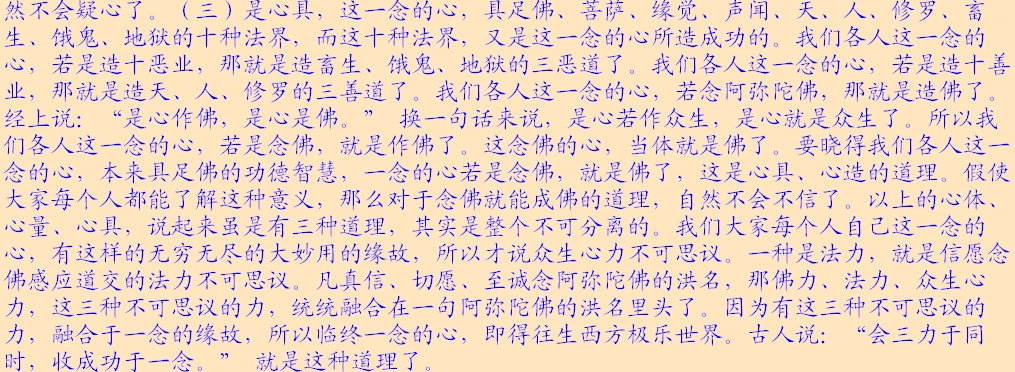 然不会疑心了。（三）是心具，这一念的心，具足佛、菩萨、缘觉、声闻、天、人、修罗、畜
生、饿鬼、地狱的十种法界，而这十种法界，又是这一念的心所造成功的。我们各人这一念的
心，若是造十恶业，那就是造畜生、饿鬼、地狱的三恶道了。我们各人这一念的心，若是造十善
业，那就是造天、人、修罗的三善道了。我们各人这一念的心，若念阿弥陀佛，那就是造佛了。
经上说：“是心作佛，是心是佛。” 换一句话来说，是心若作众生，是心就是众生了。所以我
们各人这一念的心，若是念佛，就是作佛了。这念佛的心，当体就是佛了。要晓得我们各人这一
念的心，本来具足佛的功德智慧，一念的心若是念佛，就是佛了，这是心具、心造的道理。假使
大家每个人都能了解这种意义，那么对于念佛就能成佛的道理，自然不会不信了。以上的心体、
心量、心具，说起来虽是有三种道理，其实是整个不可分离的。我们大家每个人自己这一念的
心，有这样的无穷无尽的大妙用的缘故，所以才说众生心力不可思议。一种是法力，就是信愿念
佛感应道交的法力不可思议。凡真信、切愿、至诚念阿弥陀佛的洪名，那佛力、法力、众生心
力，这三种不可思议的力，统统融合在一句阿弥陀佛的洪名里头了。因为有这三种不可思议的
力，融合于一念的缘故，所以临终一念的心，即得往生西方极乐世界。古人说：“会三力于同
时，收成功于一念。” 就是这种道理了。